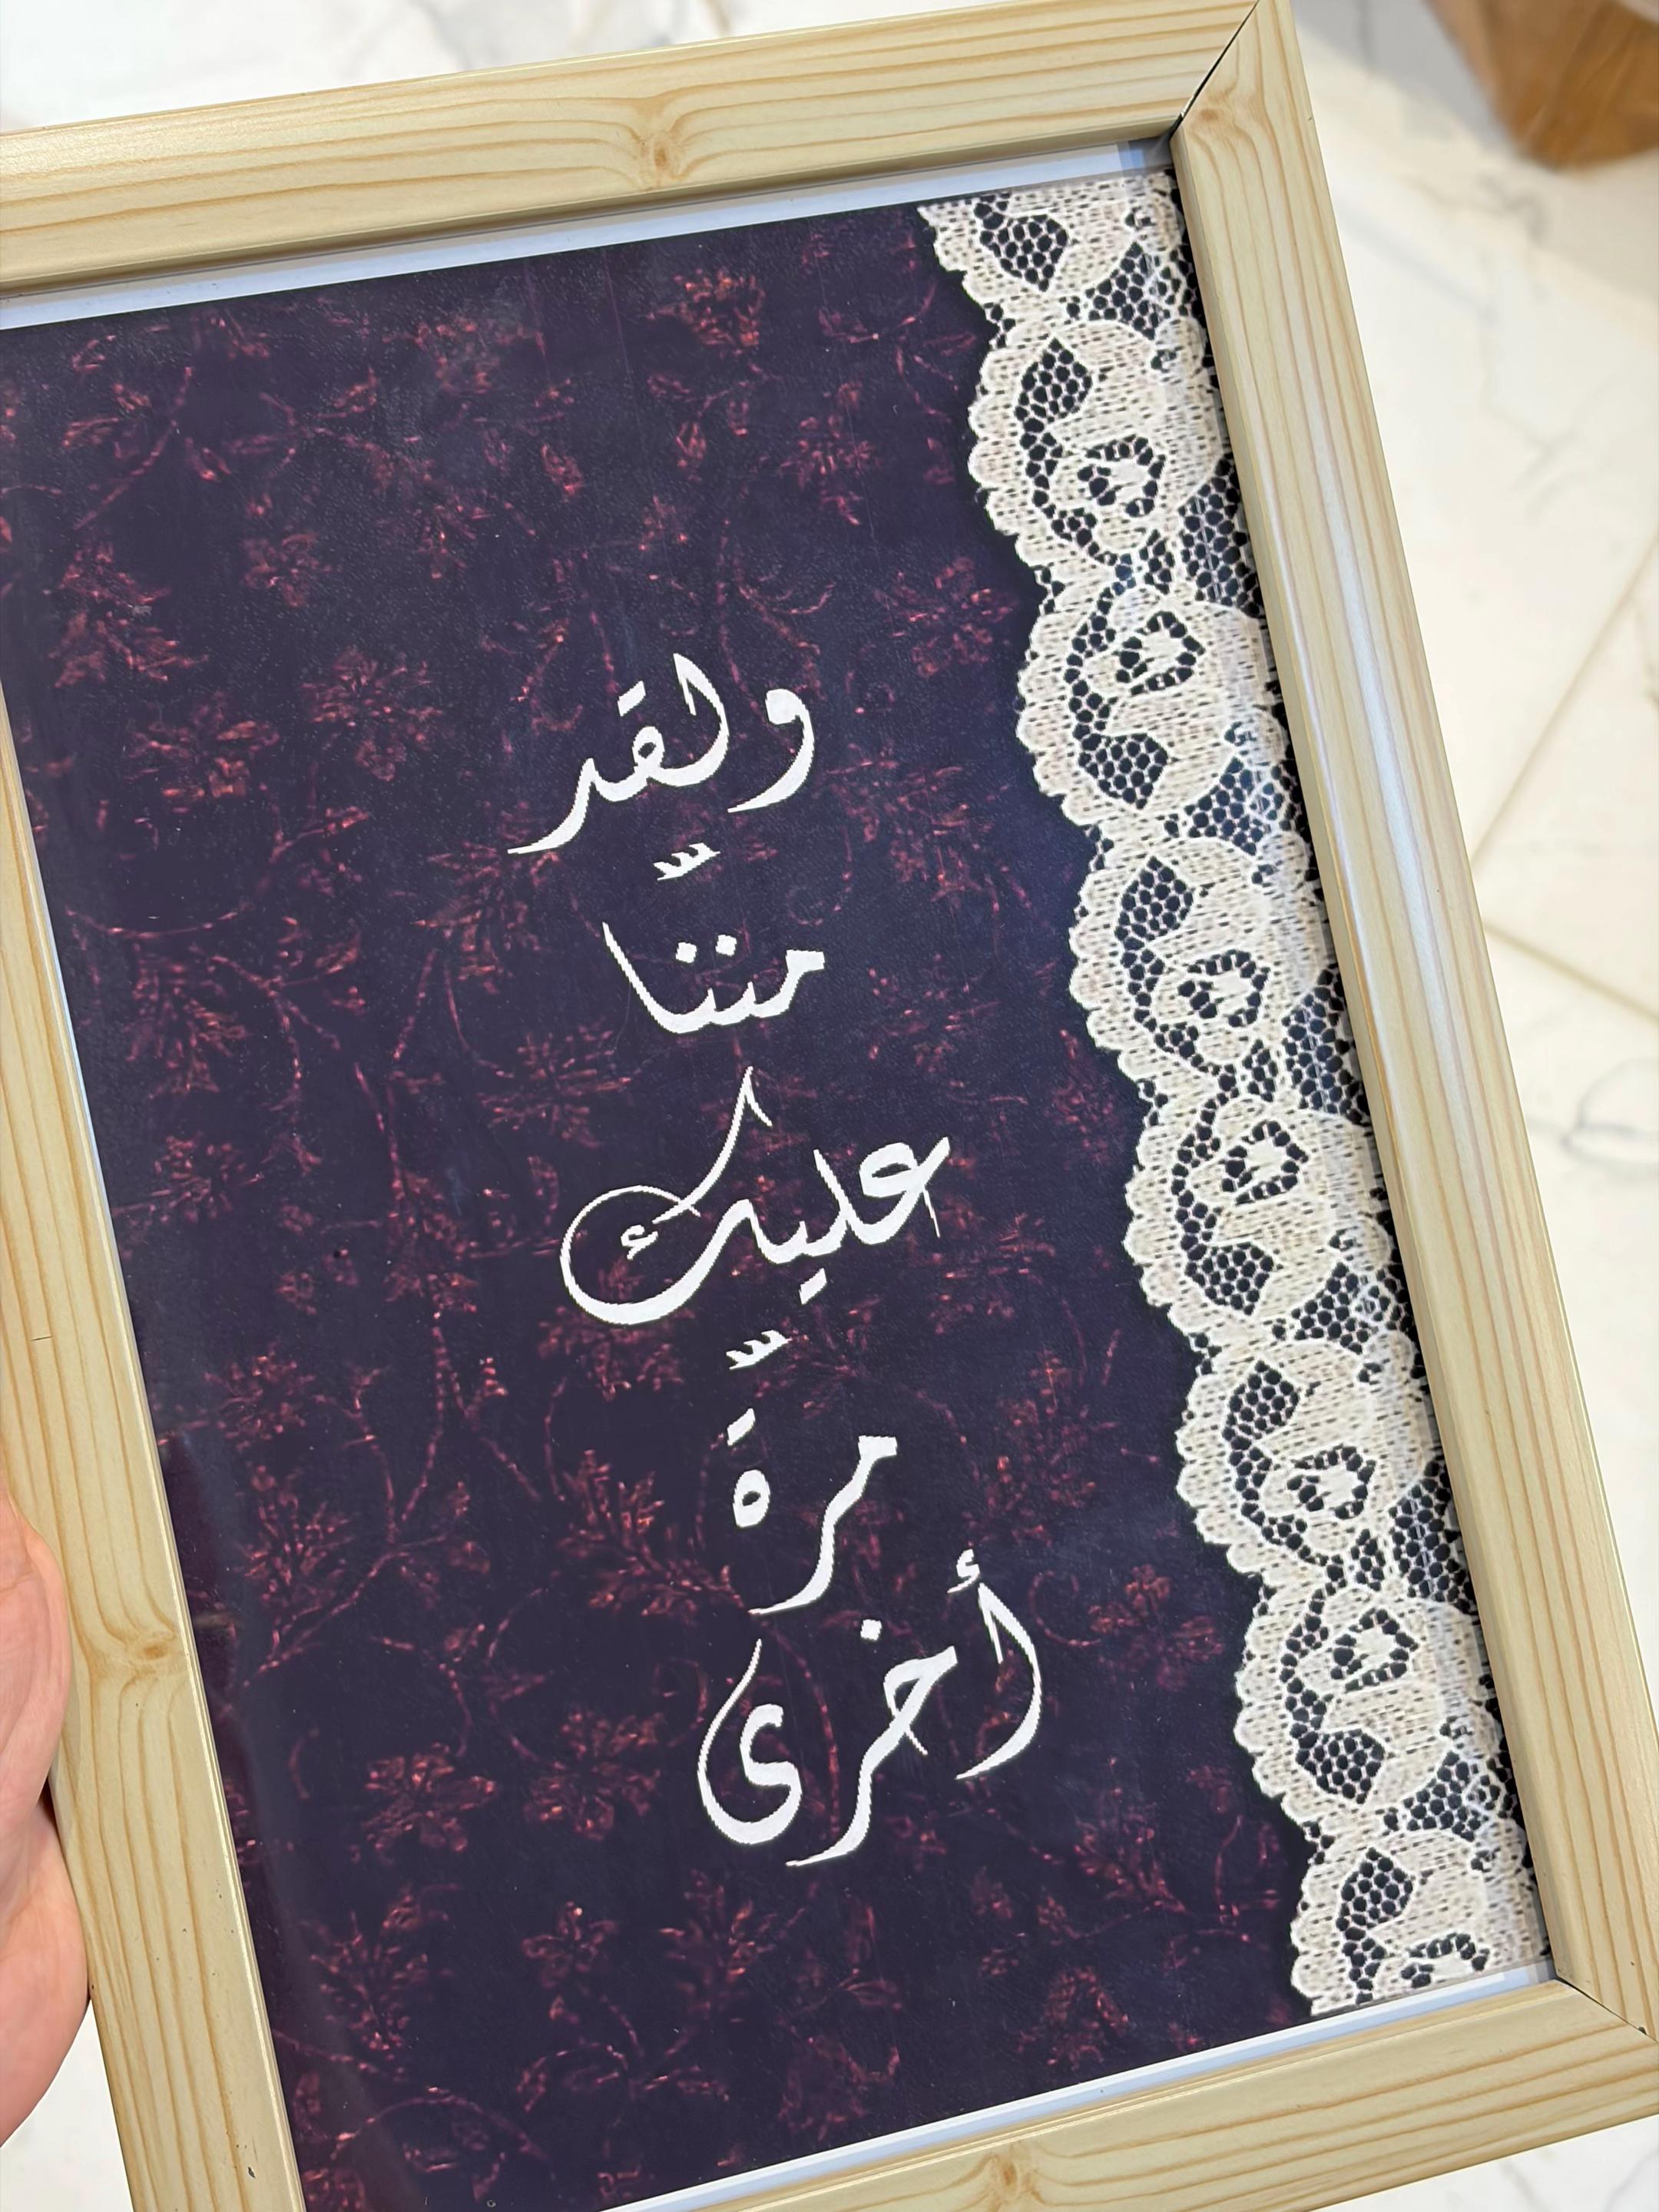 ولقد
مننّا
عليك
مرّة
أخرى